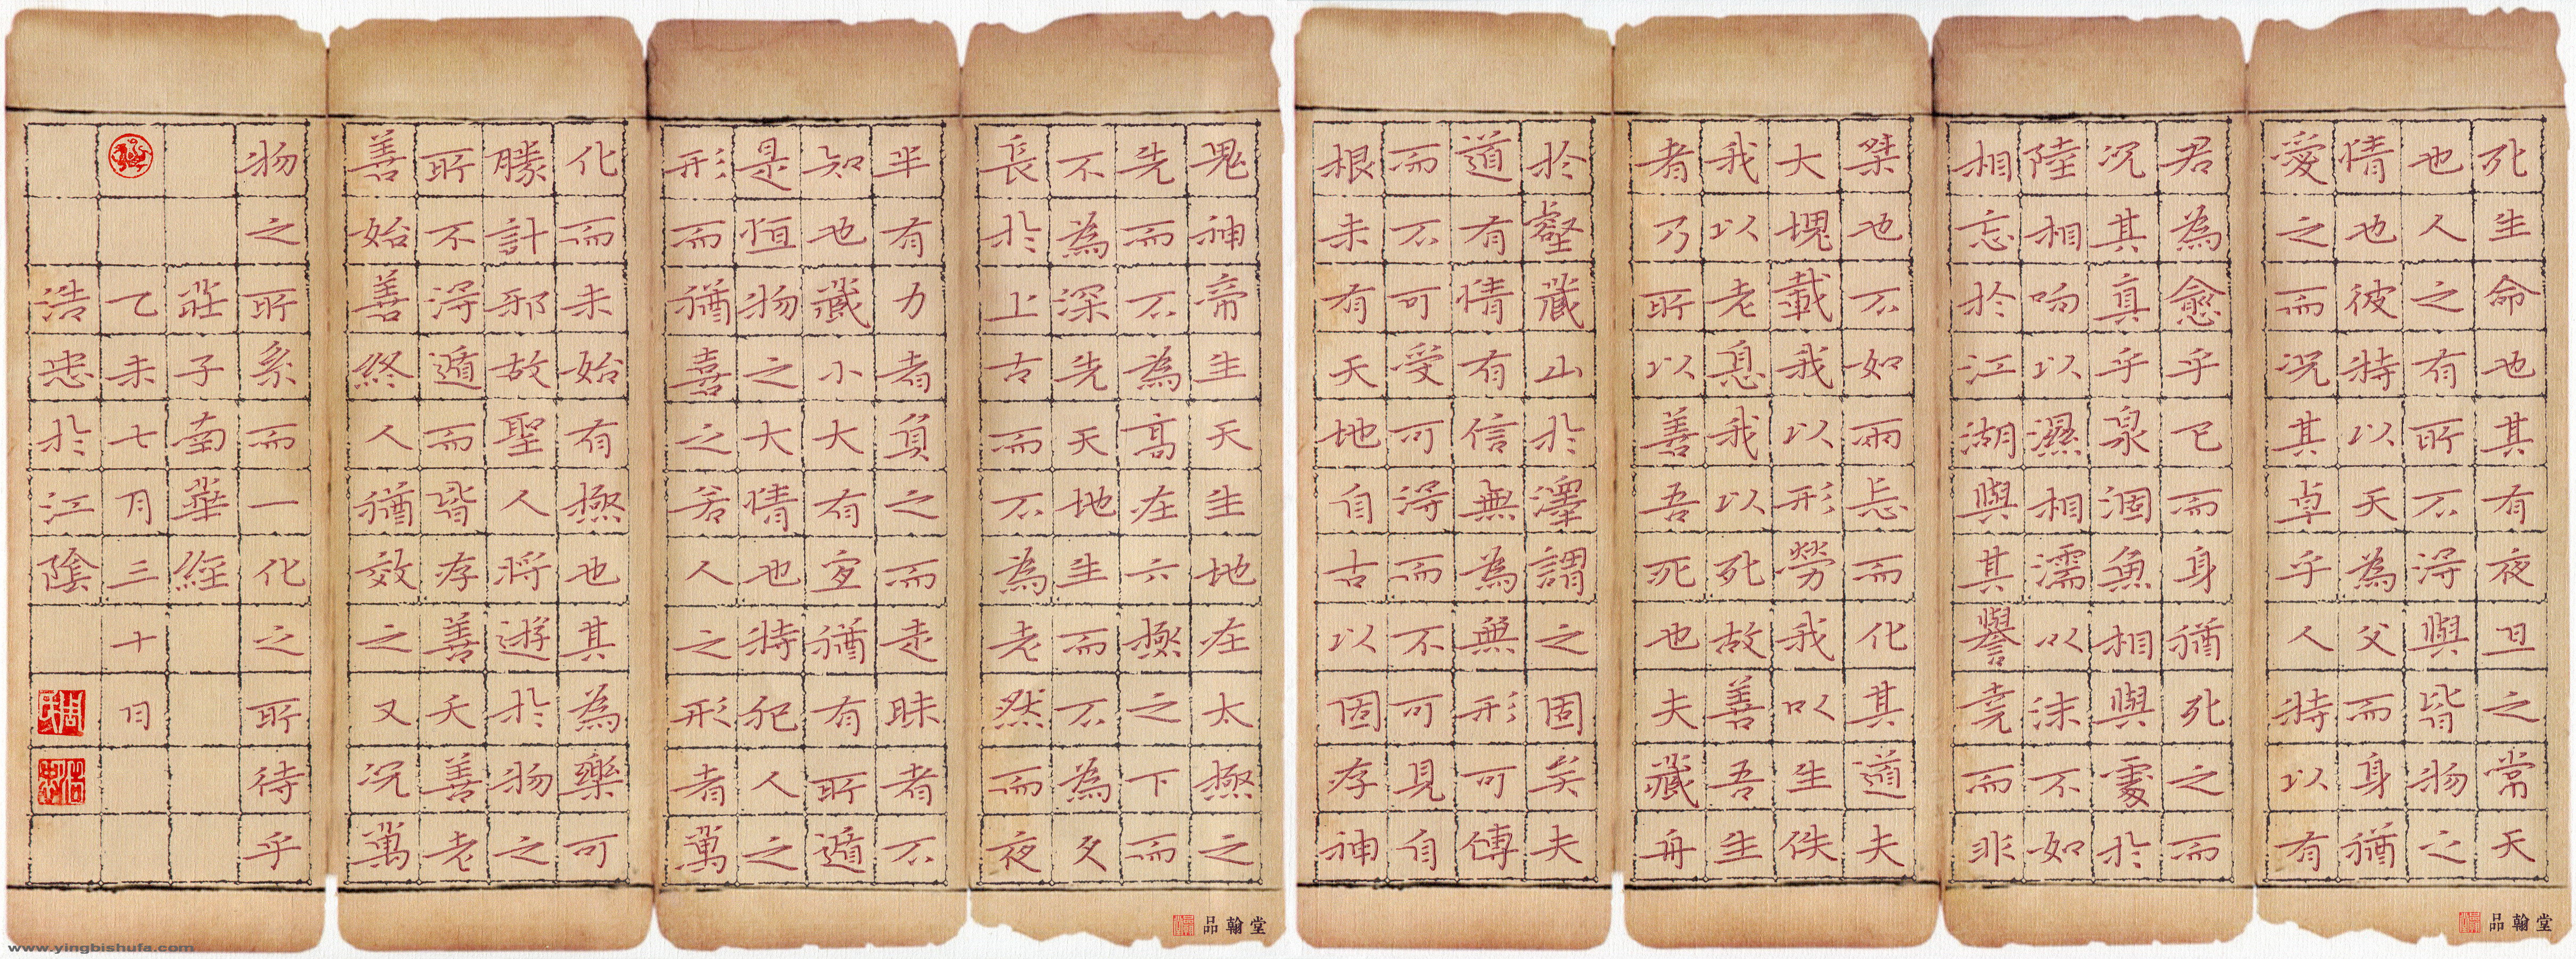 死生命也其有夜旦之常天
也人之有所不得與皆物之
情也彼特以天為父而身猶
愛之而況其卓乎人特以有
君為愈乎已而身猶死之而
況其真乎泉涸魚相與處於
陸相呴以濕相濡以沫不如
相忘於江湖與其譽堯而非
桀也不如兩忘而化其道夫
大塊載我以形勞我以生佚
我以老息我以死故善吾生
者乃所以善吾死也夫藏舟
於壑藏山於澤謂之固矣夫
道有情有信無為無形可傳
而不可受可得而不可見自
根未有天地自古以固存神
鬼神帝生天生地在太極之
先而不為高在六極之下而
不為深先天地生而不為久
長於上古而不為老然而夜
半有力者負之而走昧者不
知也藏小大有宜猶有所遁
是恒物之大情也特犯人之
形而猶喜之若人之形者萬
化而未始有極也其為樂可
勝計邪故聖人將遊於物之
所不得遁而皆存善夭善老
善始善終人猶效之又況萬
物之所系而一化之所待乎
莊子南華經
乙未七月三十日
浩忠於江陰
周氏
浩忠
品翰堂
品翰堂
www.yingbishufa.com